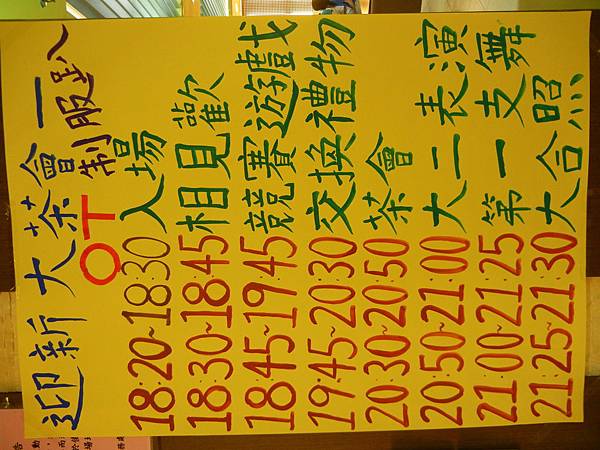 迎新大茶會—制服趴
OT
18:20~18:30 入場
18:30~18:45 相見歡
18:45~19:45 競賽遊戲
19:45~20:30 交換禮物
20:30~20:50 茶會
20:50~21:00 大二表演
21:00~21:25 第一支舞
21:25~21:30 大合照